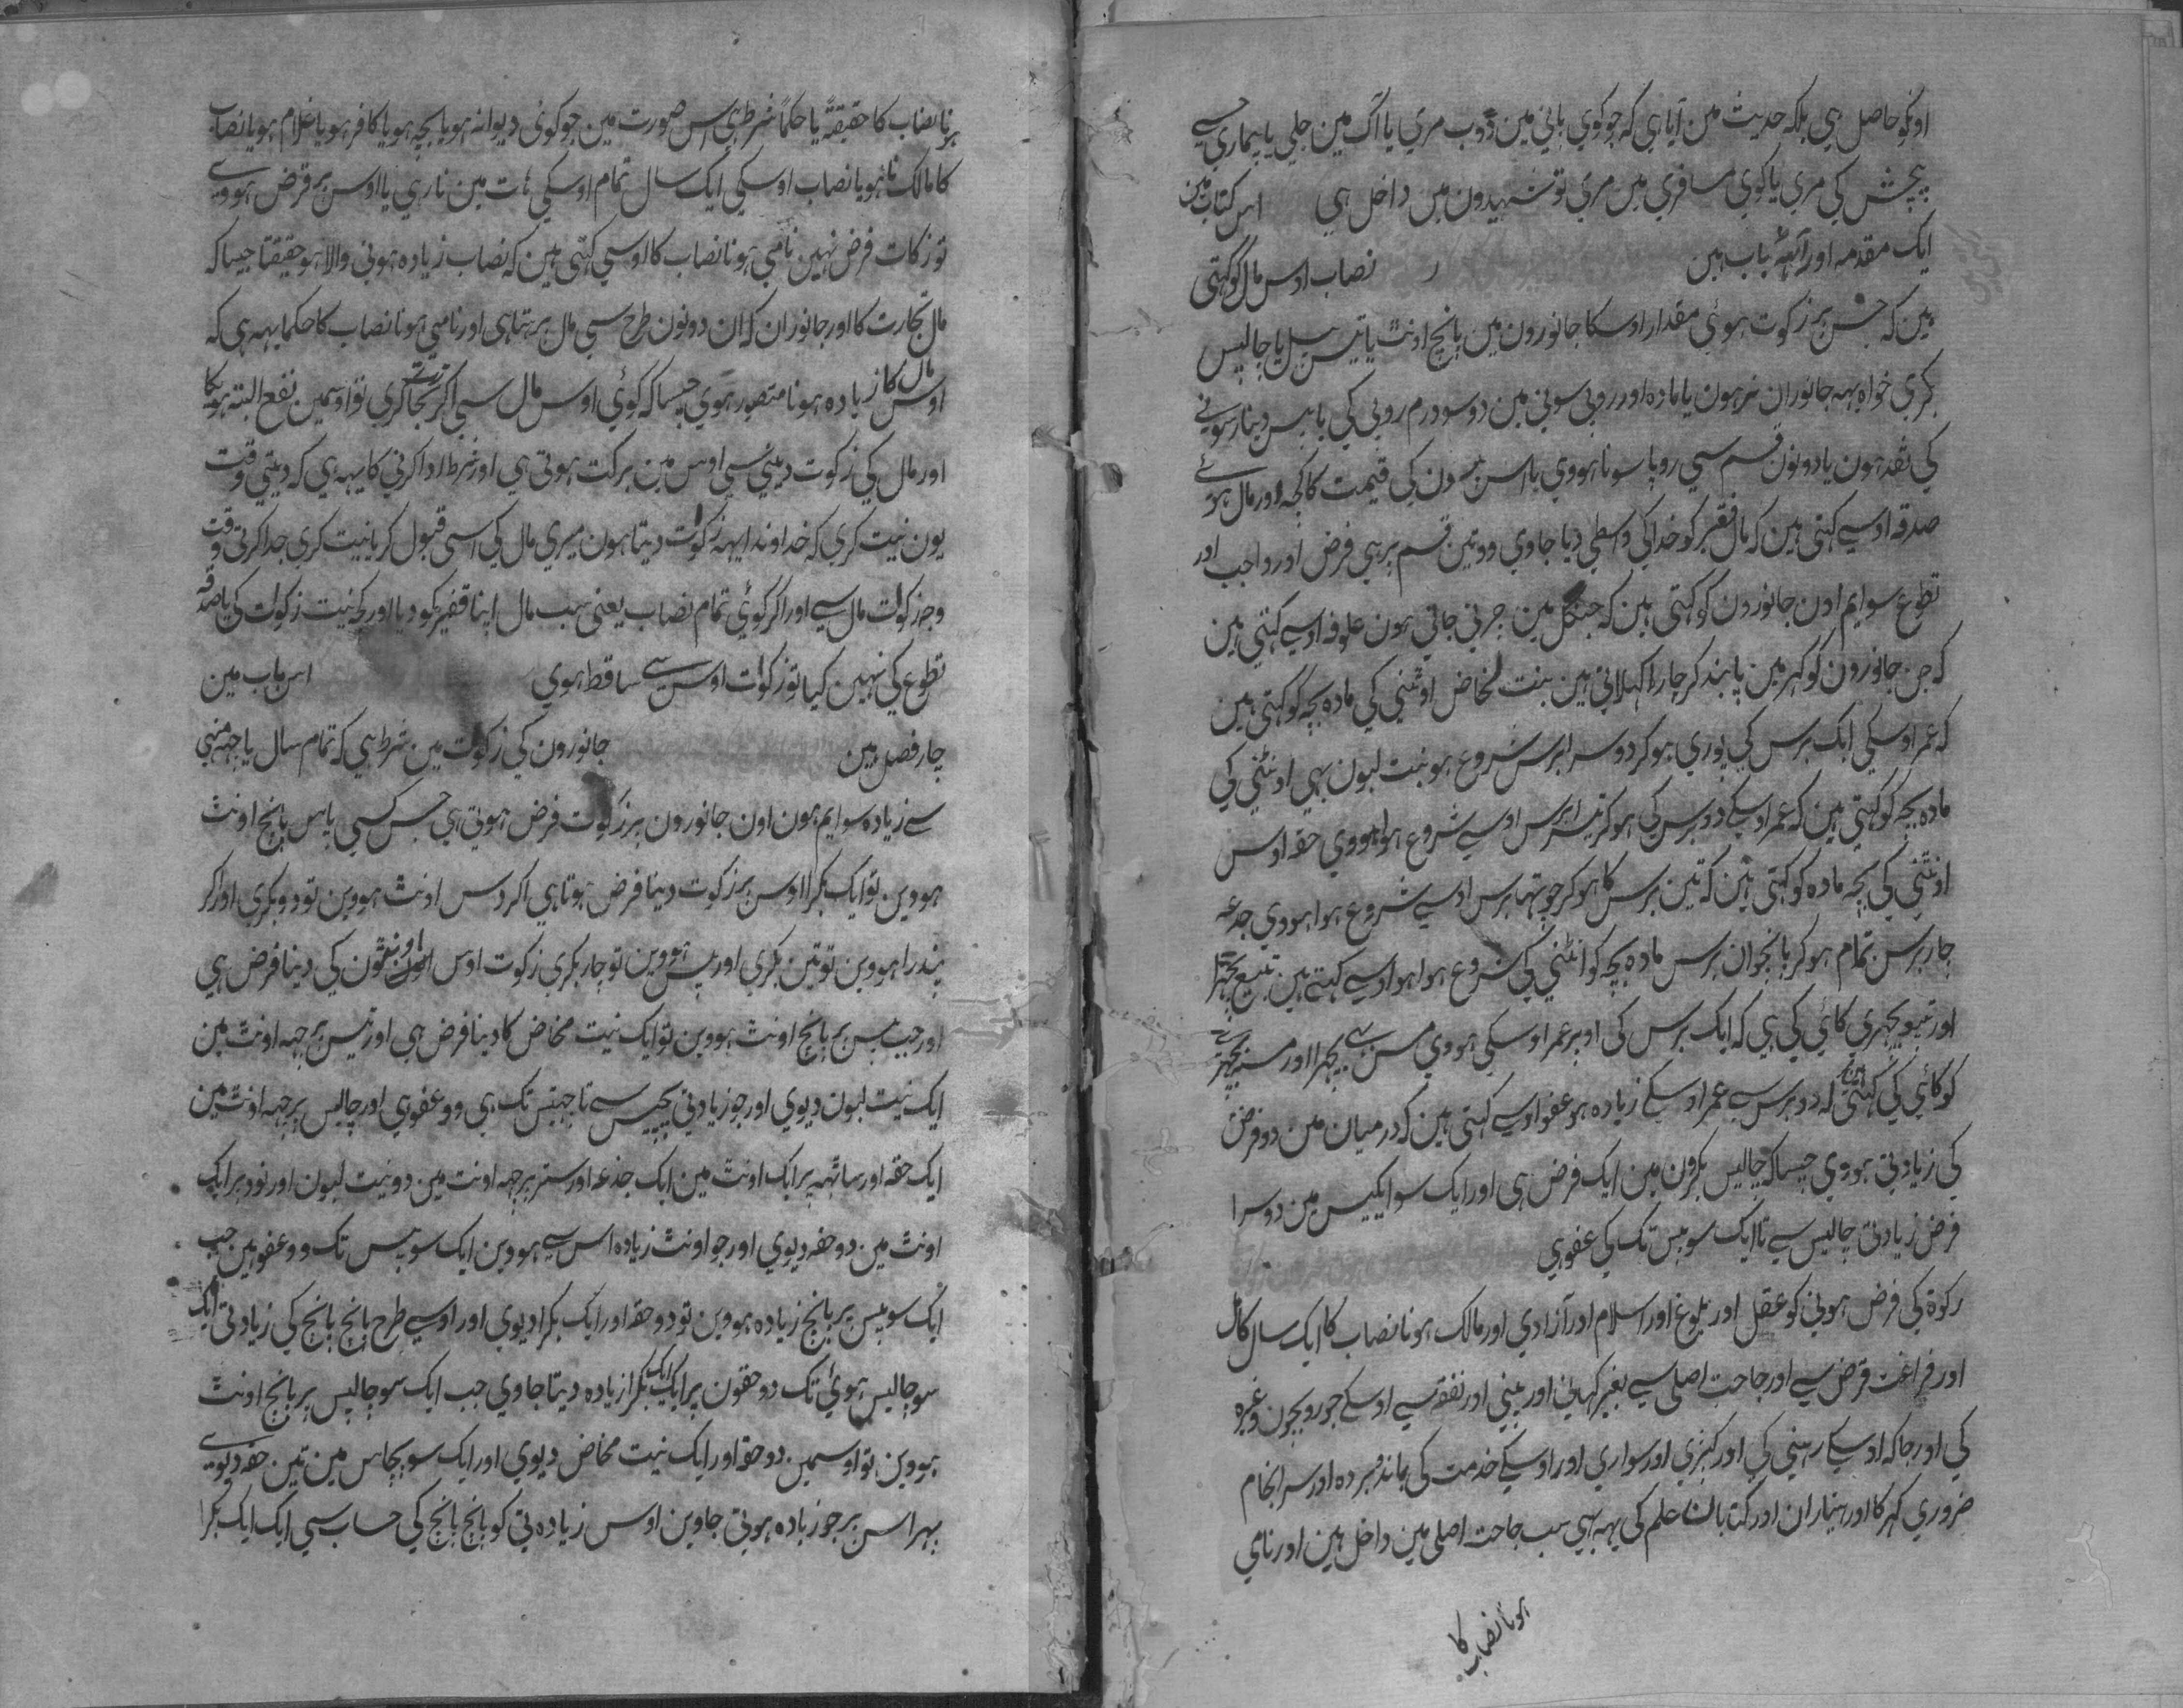 اونکو حاصل ہی بلکہ حدیث مین آیا ہی کہ جو کوی پانی مین ڈوب مری یا آگ مین جلی یا بیماری سے
پیچش کی مری یا کوی مسافری مین مری تو شہیدون مین داخل ہی اس کتاب مین
ایک مقدمہ اور آٹھہ باب ہین نصاب اوس مال کو کہتی
ہین کہ جس پر زکوت ہوئی مقدار اوسکا جانورون مین پانچ اونٹ یا تیس بیل یا چالیس
بکری خواہ یہہ جانوران نر ہون یا مادہ اور روپی سونی مین دو سو درم روپی کی یا بیس دینار سونے
کی نقد ہون یا دونون قسم سی روپا سونا ہووی یا اس دن کی قیمت کا کچہ اور مال ہوئے
صدقہ اوسے کہتی ہین کہ مال فقیر کو خدا کی واسطی دیا جاوی وو تین قسم پر ہی فرض اور واجب اور
تطوع سوایم اون جانورون کو کہتی ہین کہ جنگل مین چرنی جاتی ہون علوفہ اوسے کہتی ہین
کہ جن جانورون کو گہر مین پابند کر چارا کہلاتی ہین بنت مخاض اونٹنی کی مادہ بچہ کو کہتی ہین
کہ عمر اوسکی ایک برس کی پوری ہو کر دوسرا برس شروع ہو بنت لبون بہی اونٹنی کی
مادہ بچہ کو کہتی ہین کہ عمر اوسکے دو برس کی ہو کر تیسرا برس اوسے شروع ہوا ہووی حقہ اوس
اونٹنی کی بچہ مادہ کو کہتی ہین کہ تین برس کا ہو کر چوتہا برس اوسے شروع ہوا ہووی جدعہ
چار برس تمام ہو کر پانچوان برس مادہ بچہ کو انٹنی کی شروع ہوا ہو اوسے کہتے ہین تبیع بچہڑا
اور تبیعہ بچہری گائی کی ہی کہ ایک برس کی اوپر عمر اوسکی ہووی مسن بچہرا اور مسنہ بچہری
کو گائی کی کہتی ہین کہ دو برس سے عمر اوسکے زیادہ ہو عفو اوسے کہتی ہین کہ درمیان مین دو فرض
کی زیادتی ہووی جیسا کہ چالیس بکرون مین ایک فرض ہی اور ایک سو ایکیس مین دوسرا
فرض زیادتی چالیس سے تا ایک سو بیس تک کی عفو ہی
زکوة کی فرض ہونی کو عقل اور بلوغ اور اسلام اور آزادی اور مالک ہونا نصاب کا ایک سال کامل
اور فراغت قرض سے اور حاجت اصلی سے بغیر کہانی اور پینی اور نفقہ سے اوسکے جورو بچون وغیرہ
کی اور جاکہ اوسکے رہنی کی اور کپڑی اور سواری اور اوسکے خدمت کی باند و بردہ اور سرانجام
ضروری گہر کا اور ہتیاران اور کتابان علم کی یہہ بہی سب حاجت اصلی مین داخل ہین اور نامی
ہونا نصاب کا
ہونا نصاب کا حقیقةً یا حکماً شرط ہی اس صورت مین جو کوئی دیوانہ ہو یا بچہ ہو یا کافر ہو یا غلام ہو یا نصاب
کا مالک نا ہو یا نصاب اوسکی ایک سال تمام اوسکی ہات مین نا رہی یا اوس پر قرض ہووے
تو زکات فرض نہین نامی ہونا نصاب کا اوسی کہتی ہین کہ نصاب زیادہ ہونی والا ہو حقیقتا جیسا کہ
مال تجارت کا اور جانوران کہ ان دونون طرح سی مال بڑہتا ہی اور نامی ہونا نصاب کا حکما یہہ ہی کہ
اوس مال کا زیادہ ہونا متصور ہوی جیسا کہ کوئی اوس مال سی اکر تجارت کری تو اوسمین نفع البتہ ہویگا
اور مال کی زکوت دینی سی اوس مین برکت ہوتی ہی اور شرط ادا کرنی کا یہہ ہی کہ دیتی وقت
یون نیت کری کہ خداوندا یہہ زکوات دیتا ہون میری مال کی اسی قبول کر یا نیت کری جدا کرتی وقت
وجہ زکوات مال سے اور اگر کوئی تمام نصاب یعنی سب مال اپنا فقیر کو دیا اور کچہ نیت زکوات کی یا صدقہ
تطوع کی نہین کیا تو زکوات اوس سے ساقط ہوی اس باب مین
چار فصل ہین جانورون کی زکوات مین شرط ہی کہ تمام سال یا چہہ مہنی
سے زیادہ سوایم ہون اون جانورون پر زکوت فرض ہوتی ہی جس کسی پاس پانچ اونٹ
ہووین تو ایک بکرا اوس پر زکوت دینا فرض ہوتا ہی اکر دس اونٹ ہووین تو دو بکری اور اکر
پندرا ہووین تو تین بکری اور بیس ہووین تو چار بکری زکوت اوس اونٹون کی دینا فرض ہی
اور جب بیس پر پانچ اونٹ ہووین تو ایک بنت مخاض کا دینا فرض ہی اور تیس پر چہہ اونٹ مین
ایک بنت لبون دیوی اور جو زیادتی پچیس سے تا چہتیس تک ہی وو عفو ہی اور چالیس پر چہہ اونٹ مین
ایک حقہ اور ساٹہہ پر ایک اونٹ مین ایک جذعہ اور ستر پر چہہ اونٹ مین دو بنت لبون اور نود پر ایک
اونٹ مین دو حقہ دیوی اور جو اونٹ زیادہ اس سے ہووین ایک سو بیس تک وو عفو ہین جب
ایک سو بیس پر پانچ زیادہ ہووین تو دو حقہ اور ایک بکرا دیوی اور اوسے طرح پانچ پانچ کی زیادتی ایک
سو چالیس ہوئی تک دو حقون پر ایک ایک بکرا زیادہ دیتا جاوی جب ایک سو چالیس پر پانچ اونٹ
ہووین تو اوسمین دو حقہ اور ایک بنت مخاض دیوی اور ایک سو پچاس مین تین حقہ دیوے
پہر اس پر جو زیادہ ہوتی جاوین اوس زیادہ تی کو پانچ پانچ کی حساب سی ایک ایک بکرا